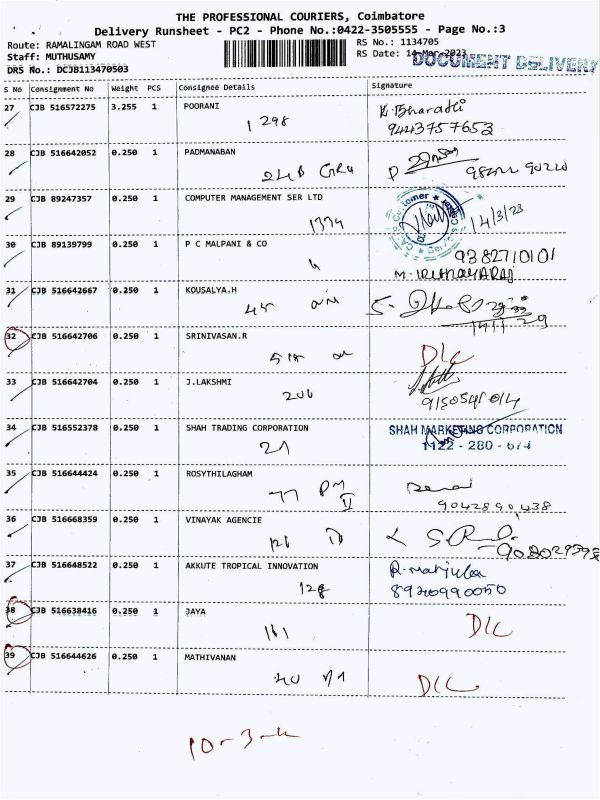 THE PROFESSIONAL COURIERS, Coimbatore
Delivery Runsheet - PC2 - Phone No.:0422-3505555 - Page No.:3
Route: RAMALINGAM ROAD WEST RS No.: 1134705
Staff: MUTHUSAMY RS Date: 14-Mar-2023
DRS No.: DCJB113470503 DOCUMENT DELIVERY
S No Consignment No Weight PCS Consignee Details Signature
27 CJB 516572275 3.255 1 POORANI K. Bharathi
1298 9443757652
28 CJB 516642052 0.250 1 PADMANABAN
29 CJB 89247357 0.250 1 COMPUTER MANAGEMENT SER LTD
1374 14/3/23
30 CJB 89139799 0.250 1 P C MALPANI & CO
9382710101
31 CJB 516642667 0.250 1 KOUSALYA.H
45
32 CJB 516642706 0.250 1 SRINIVASAN.R
DLC
33 CJB 516642704 0.250 1 J.LAKSHMI
206 9150541014
34 CJB 516552378 0.250 1 SHAH TRADING CORPORATION SHAH MARKETING CORPORATION
21 1122 - 280 - 674
35 CJB 516644424 0.250 1 ROSYTHILAGHAM
77 PM
9042890438
36 CJB 516668359 0.250 1 VINAYAK AGENCIE
37 CJB 516648522 0.250 1 AKKUTE TROPICAL INNOVATION R. Manjula
128 8940990050
38 CJB 516638416 0.250 1 JAYA
161 DLC
39 CJB 516644626 0.250 1 MATHIVANAN
DLC
10-3-